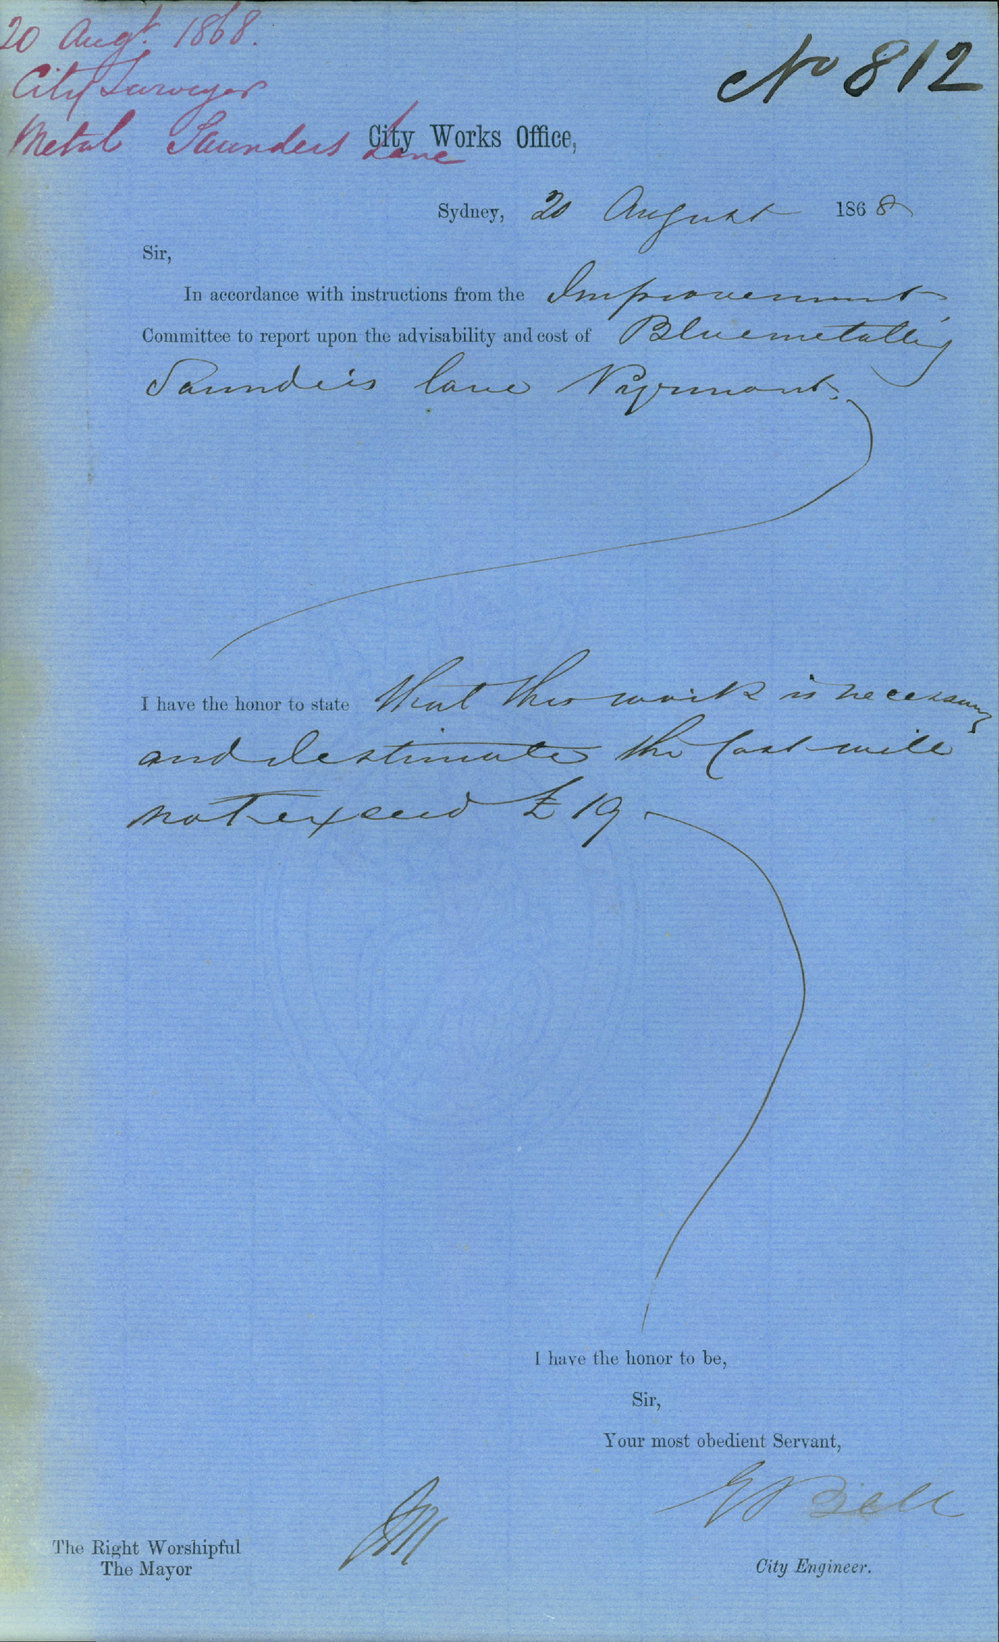 20 Augt. 1868.
City Surveyor
Metal Saunders Lane
No 812
City Works Office,
Sydney, 20 August 1868
Sir,
In accordance with instructions from the Improvement
Committee to report upon the advisability and cost of Bluemetalling
Saunders lane Pyrmont.
I have the honor to state that this work is necessary
and I estimate the Cost will
not exceed £19
I have the honor to be,
Sir,
Your most obedient Servant,
E Bell
The Right Worshipful
The Mayor
City Engineer.